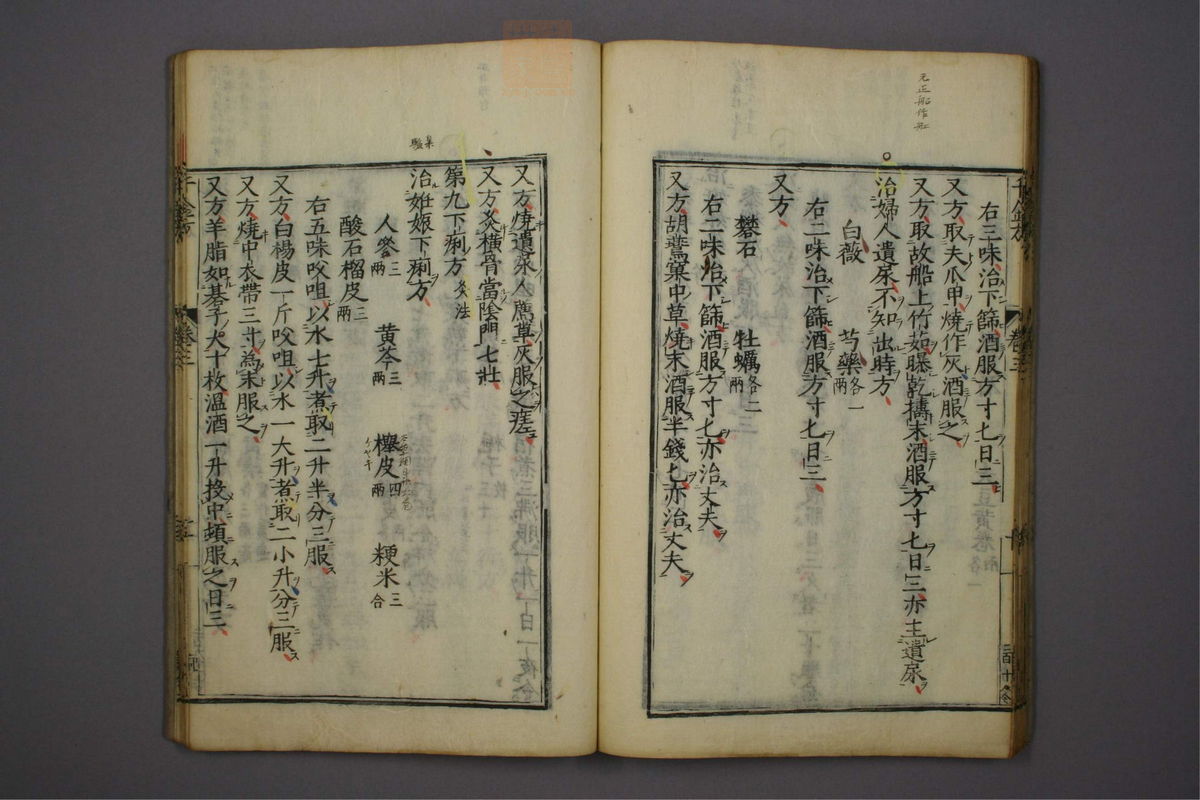 元正船作舡
右三味治下篩酒服方寸匕日三
又方取夫爪甲燒作灰酒服之
又方取故船上竹茹曝乾擣末酒服方寸匕日三亦主遺尿
治婦人遺尿不知出時方
白薇 芍藥各一兩
右二味治下篩酒服方寸匕日三
又方
礬石 牡蠣各二兩
右二味治下篩酒服方寸匕亦治丈夫
又方胡鷰窠中草燒末酒服半錢匕亦治丈夫
卷三
又方燒遺尿人薦草灰服之瘥
又方灸橫骨當陰門七壯
第九下痢方灸法
治妊娠下痢方
人參三兩 黄芩三兩 櫸皮四兩 粳米三合
酸石榴皮三兩
右五味㕮咀以水七升煮取二升半分三服
又方白楊皮一斤㕮咀以水一大升煮取二小升分三服
又方燒中衣帶三寸為末服之
又方羊脂如碁子大十枚温酒一升投中頓服之日三
千金方
卷三